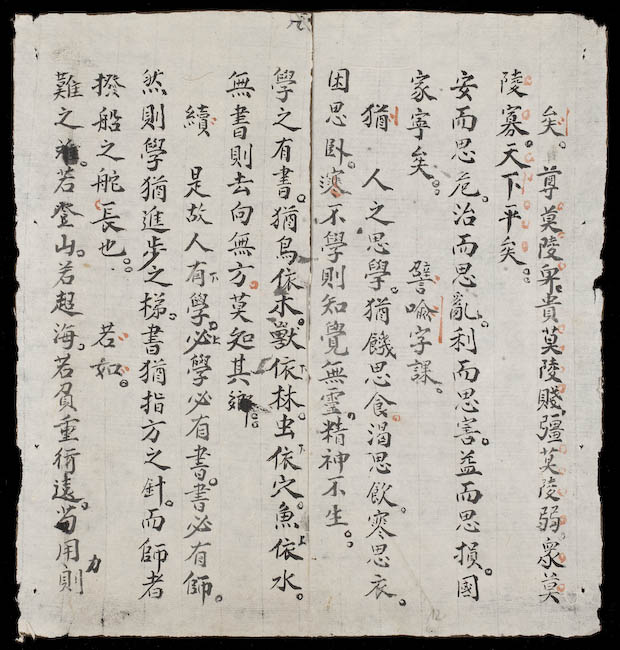 矣。尊莫陵卑貴莫陵賤。彊莫陵弱。衆莫
陵寡。天下平矣。
安而思危。治而思亂。利而思害。益而思損。國
家寧矣。 譬喩字課。
猶 人之思學。猶饑思食。渴思飲。寒思衣。
因思臥。不學則知覺無靈。精神不生。
學之有書。猶鳥依木。獸依林。虫依穴。魚依水。
無書則去向無方。莫知其鄉。
續 是故人有學。必學必有書。書必有師。
然則學猶進步之梯。書猶指方之針。而師者
撥船之舵長也。 若如。
難之若登山。若超海。若負重行遠。苟用則
力